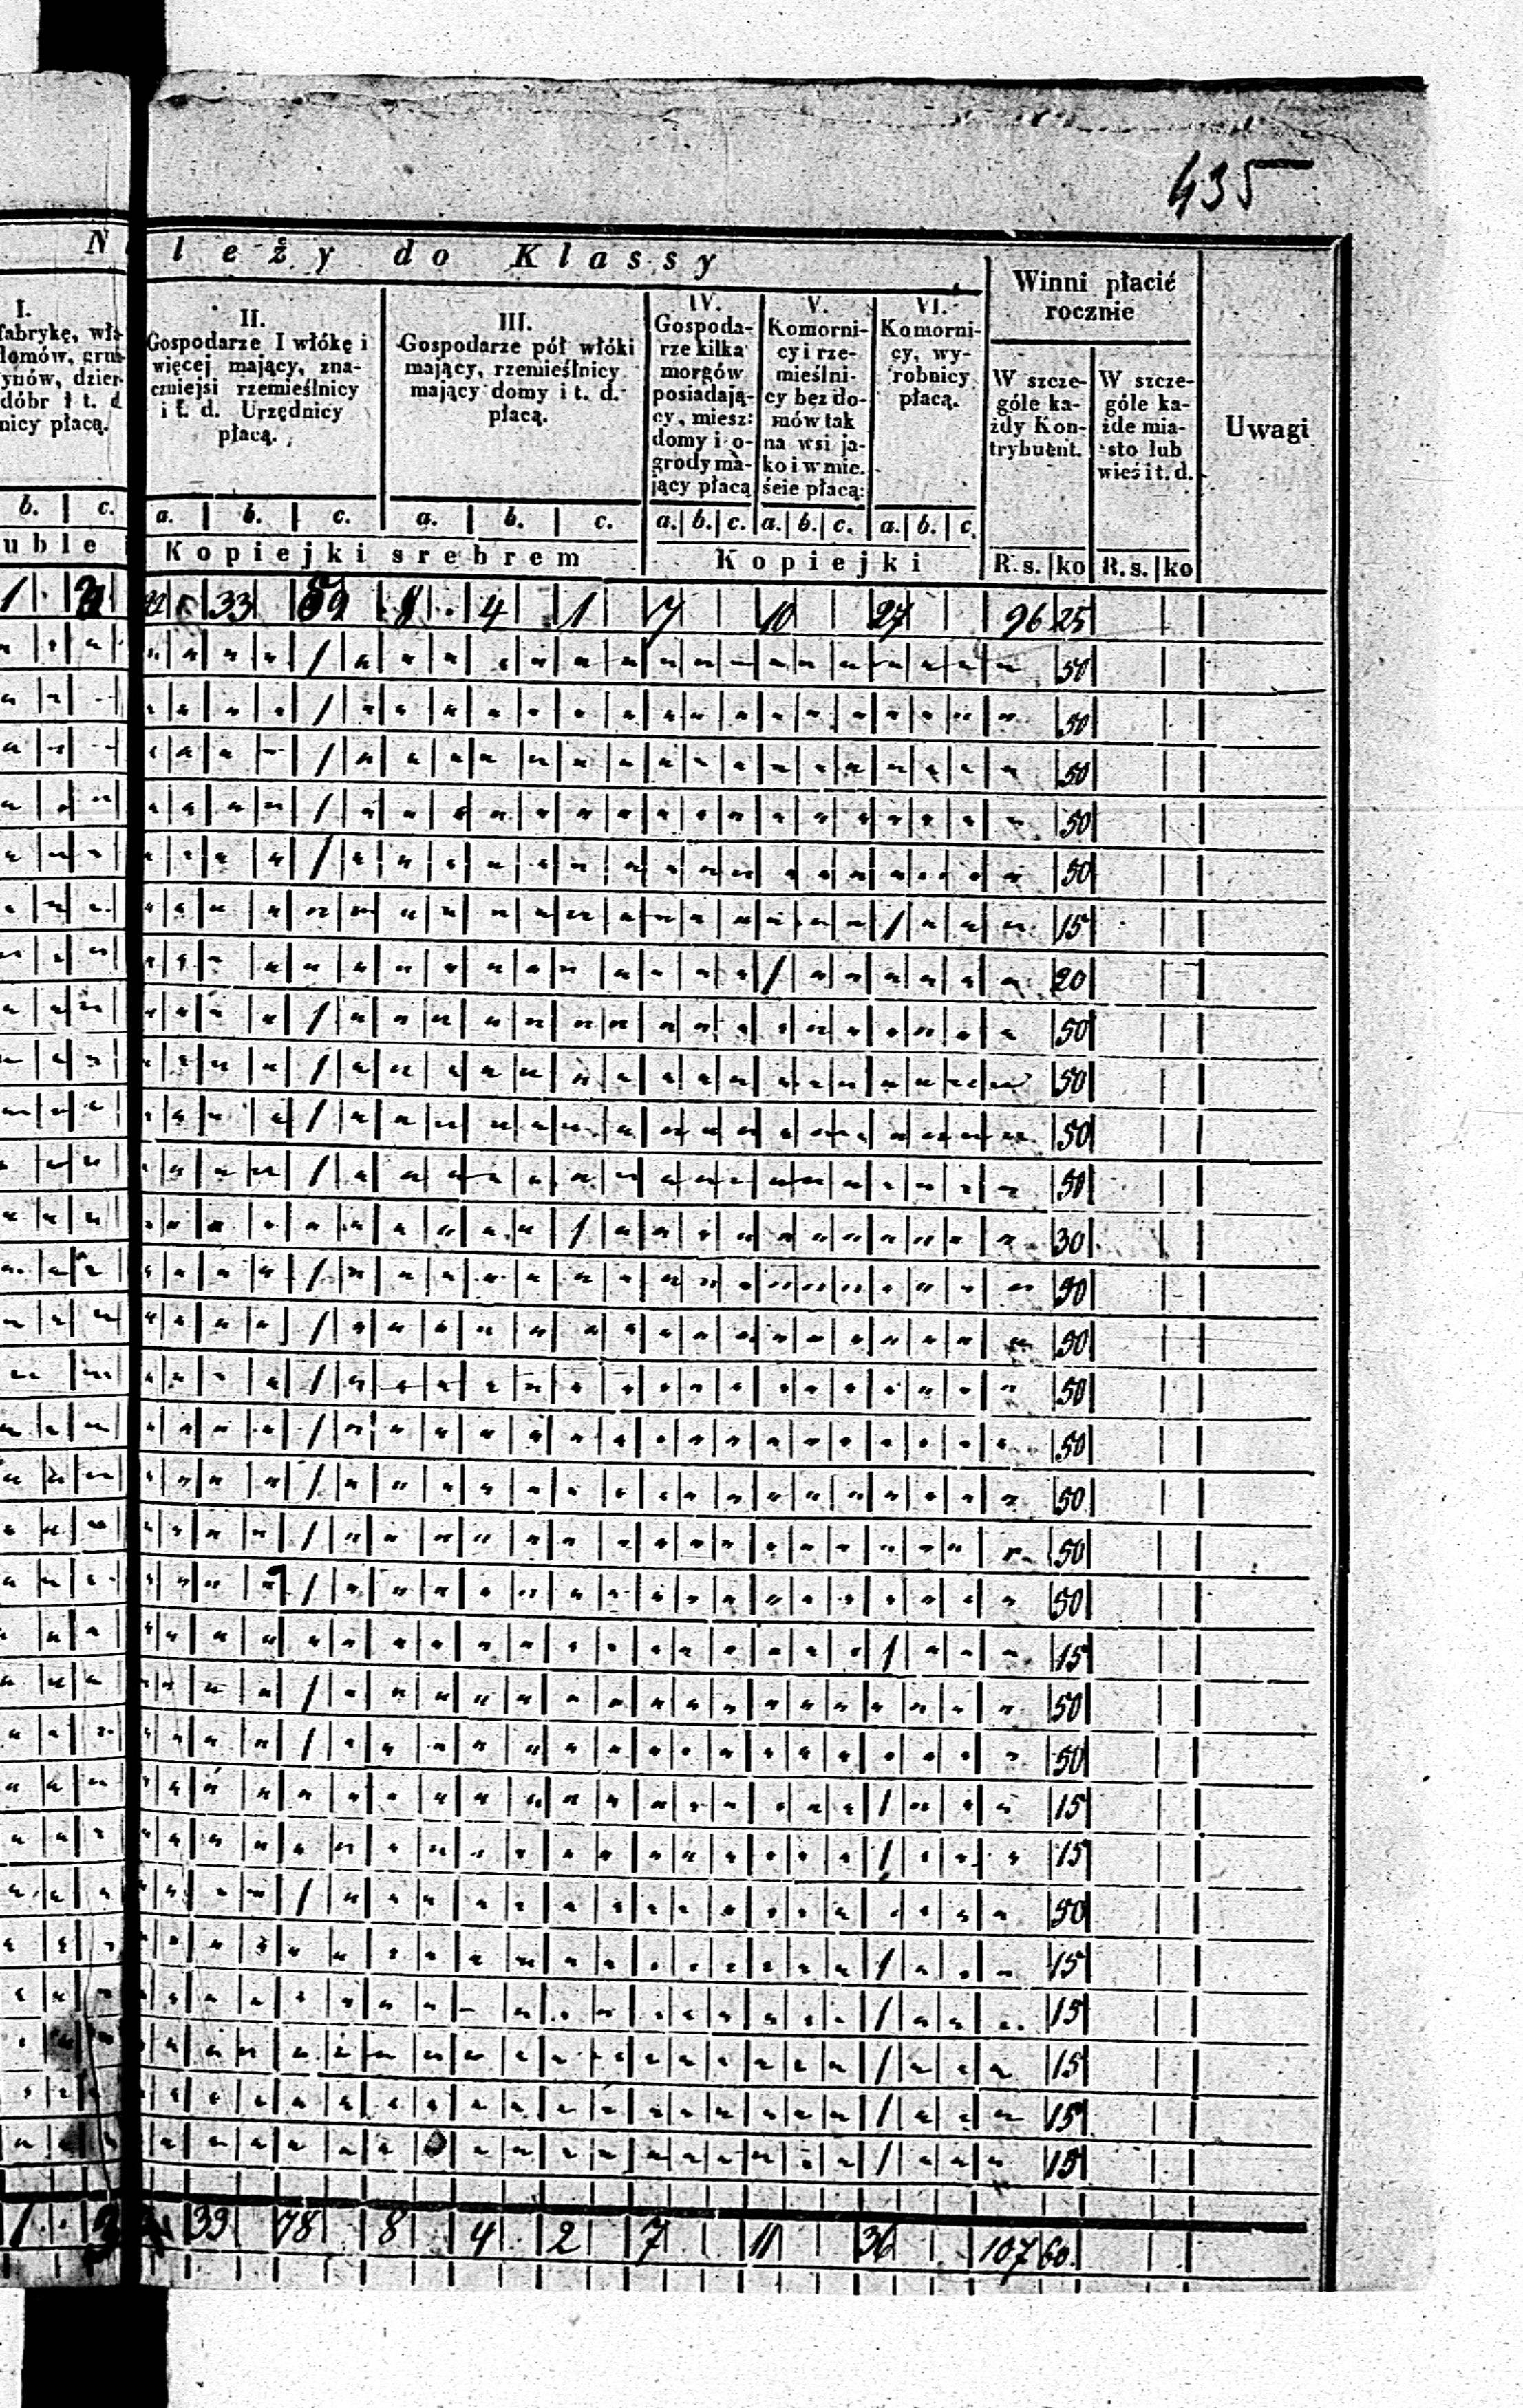 435
N leży do Klassy
Winni płacić rocznie
Uwagi
I.
fabrykę, wła-
domów, grun-
ynów, dzier-
dóbr i t. d
nicy płacą.
II.
Gospodarze I włókę i
więcej mający, zna-
czniejsi rzemieślnicy
i t. d. Urzędnicy
płacą.
III.
Gospodarze pół włóki
mający, rzemieślnicy
mający domy i t. d.
płacą.
IV.
Gospoda-
rze kilka
morgów
posiadają-
cy, miesz:
domy i o-
grody ma-
jący płacą
V.
Komorni-
cy i rze-
mieślni-
cy bez do-
mów tak
na wsi ja-
ko i w mie.
ście płacą:
VI.
Komorni-
cy, wy-
robnicy
płacą.
W szcze-
góle ka-
żdy Kon-
trybuent.
W szcze-
góle ka-
żde mia-
sto lub
wieś i t. d.
b. c. a. b. c. a. b. c. a. b. c. a. b. c. a. b. c.
uble Kopiejki srebrem Kopiejki R. s. ko R. s. ko
1 33 59 8 4 1 7 10 27 96 25
/ 50
/ 50
/ 50
/ 50
/ 50
/ 15
/ 20
/ 50
/ 50
/ 50
/ 50
/ 30
/ 50
/ 50
/ 50
/ 50
/ 50
/ 50
/ 50
/ 15
/ 50
/ 50
/ 15
/ 15
/ 50
/ 15
/ 15
/ 15
/ 15
/ 15
1 33 78 8 4 2 7 11 36 107 60